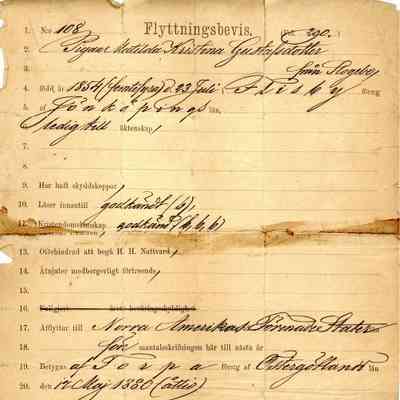 1. N:o 108. Flyttningsbevis. (Fol. 290.)
2. Pigan Matilda Kristina Gustafsdotter
3. från Skogeby,
4. född år 1854 (femtifyra) d. 23 Juli i Frisby förs:g
5. af Jönköpings län,
6. ledig till äktenskap,
7.
7.
8.
9. Har haft skyddskoppor,
10. Läser innantill godkändt (b),
12. Kristendomskunskap, godkänd (b, b, b)
13. Oförhindrad att begå H. H. Nattvard,
14. Åtnjuter medborgerligt förtroende,
15.
16. Fullgjort årets beväringsskyldighet,
17. Afflyttar till Norra Amerikas Förenade Stater
18. före mantalsskrifningen här till nästa år
19. Betygas af Torpa förs:g af Östergötlands län
20. den 12 Maj 1880 (åttio)